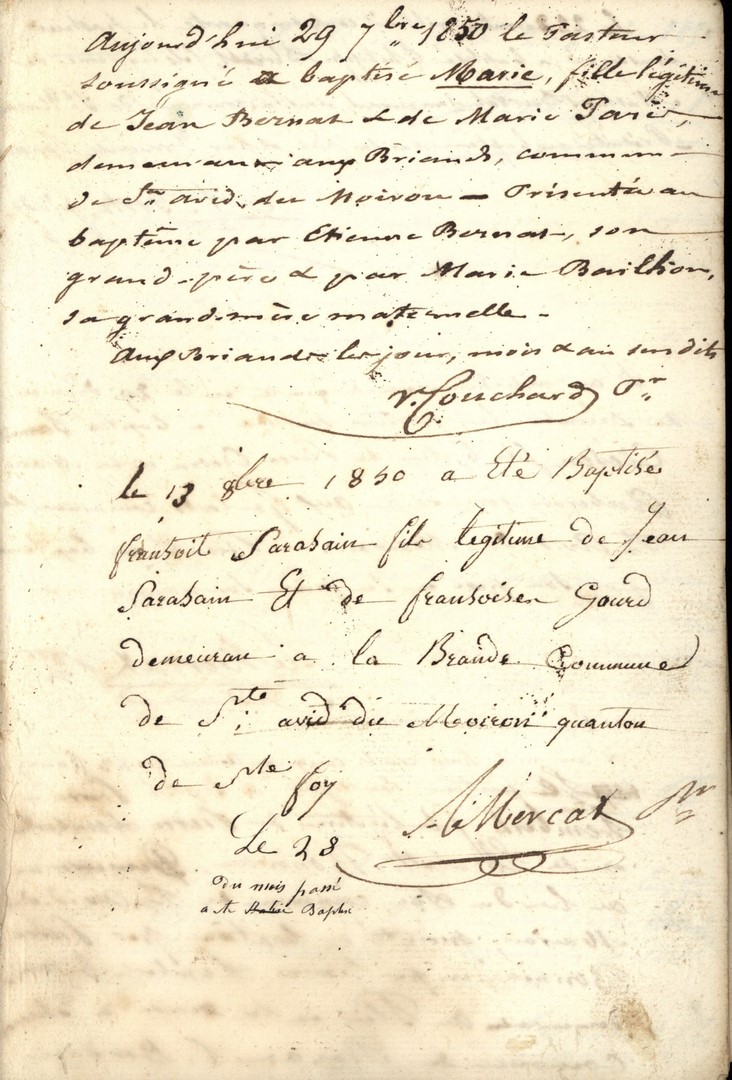 Aujourd'hui 29 7bre 1850 le Pasteur
soussigné a baptisé Marie, fille légitime
de Jean Bernat & de Marie Paris,
demeurant aux Briands, commune
de St. avid du Moiron – Présentée au
baptême par Etienne Bernat, son
grand-père & par Marie Bailhon,
sa grand-mère maternelle –
Aux Briands les jour, mois & an susdits
Couchard Pr.
le 13 8bre 1850 a Eté Baptisée
fransoit Sarasain fils legitime de Jean
Sarasain Et de fransoisen Gourd
demeuran a la Brande Commune
de Ste. avid du Moiron quanton
de Ste foy
A. Mercat Pr
Le 28
du mois passé
a ete Baptisé